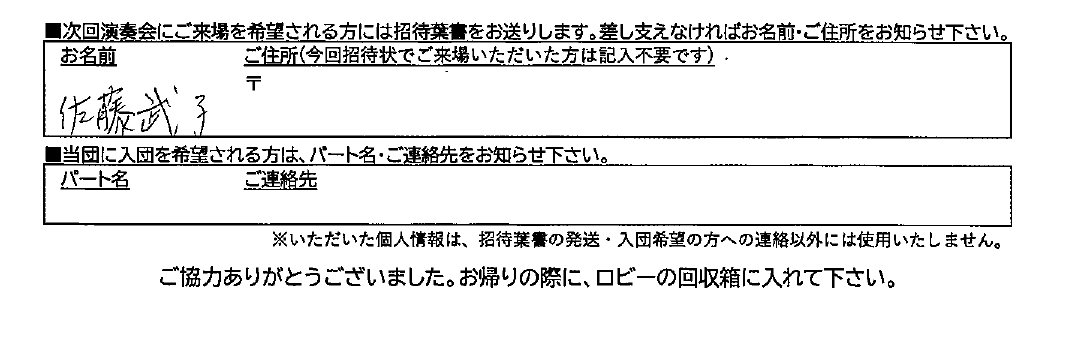 ■次回演奏会にご来場を希望される方には招待葉書をお送りします。差し支えなければお名前・ご住所をお知らせ下さい。
お名前 ご住所(今回招待状でご来場いただいた方は記入不要です)
〒
佐藤武子
■当団に入団を希望される方は、パート名・ご連絡先をお知らせ下さい。
パート名 ご連絡先
※いただいた個人情報は、招待葉書の発送・入団希望の方への連絡以外には使用いたしません。
ご協力ありがとうございました。お帰りの際に、ロビーの回収箱に入れて下さい。